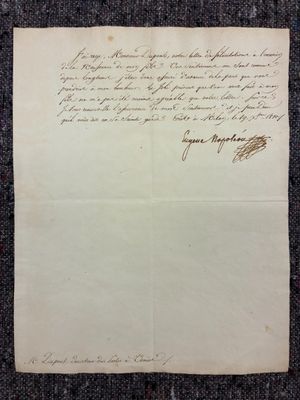 J'ai reçu, Monsieur Dupont, votre lettre de félicitations à l'occasion
de la Naissance de mon fils. Vos sentimens me sont connus
depuis longtems; j'étais donc assuré d'avance de la part que vous
prendriez à mon bonheur. Le joli présent que vous me faites à mon
fils ne m'a pas été moins agréable que votre lettre
nouvelle expression de vos sentimens. Et je prie Dieu
qu'il vous ait en Sa Sainte garde. Ecrit à Milan, le
Eugène Napoléon
Mr. Dupont Directeur des Postes à Venise